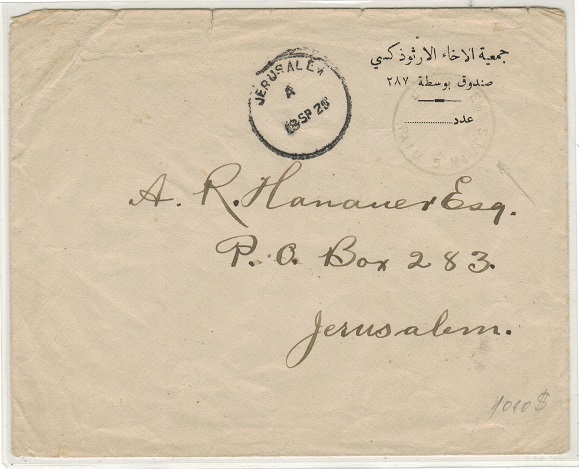 جمعية الاخاء الارثوذكسي
صندوق بوسطة ٢٨٧
عدد ................
JERUSALEM
A
SP 25
A. R. Hanauer Esq.
P. O. Box 283.
Jerusalem.